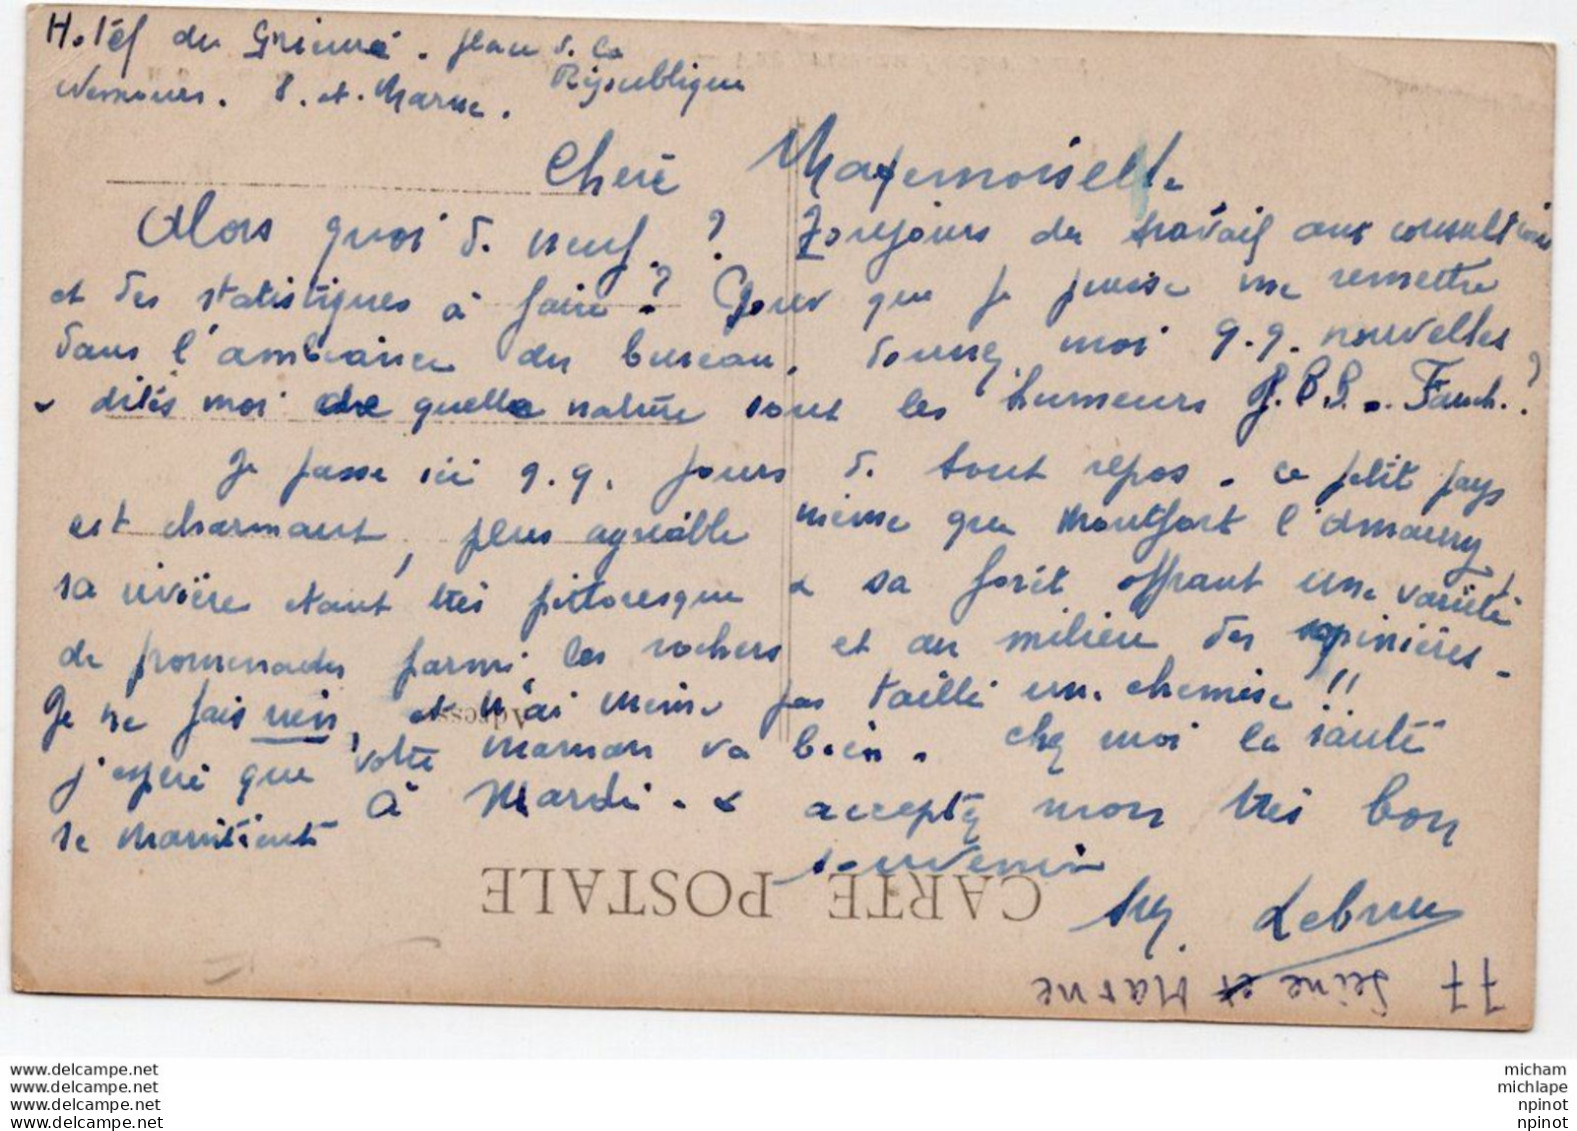 Hotel du . place d. la
Nemours. S. et. Marne. République
Chère Mademoiselle
Alors quoi d. neuf. ? Toujours du travail aux consultations
et des statistiques à faire ? Pour que je puisse me remettre
dans l'ambiance du bureau, donnez moi q.q. nouvelles
dites moi de quelle nature sont les humeurs P.B.B. . Fauch. ?
Je passe ici q.q. jours d. tout repos. Ce petit pays
est charmant, plus agréable même que Montfort l'Amaury,
sa rivière étant très pittoresque & sa forêt offrant une variété
de promenades parmi les rochers et au milieu des sapinières.
Je ne fais rien, et n'ai même pas taillé un. chemise !!
j'espère que votre maman va bien. Chez moi la santé
se maintient à Mardi. & acceptez mon très bon
souvenir
Lebrun
CARTE POSTALE
Adresse
77 Seine et Marne
www.delcampe.net
www.delcampe.net
www.delcampe.net
www.delcampe.net
micham
michlape
npinot
npinot